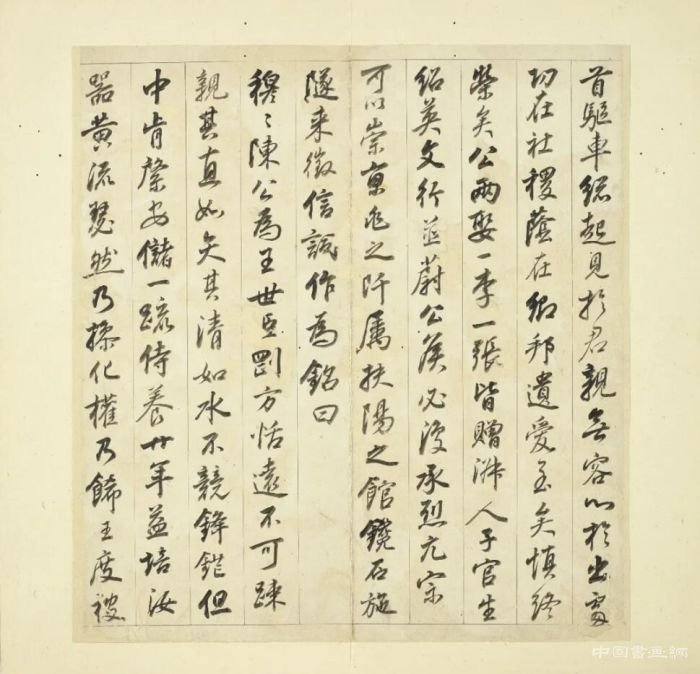 首驅車總起見於君親無容心於出處
功在社稷蔭在鄉邦遺愛至矣慎終
榮矣公兩娶一李一張皆贈淑人子官生
紹英文行並蔚公侯必復承烈亢宗
可以崇京兆之阡属扶陽之館鐫石施
隧来徵信誠作為銘曰
穆〻陳公為王世臣剛方恬遠不可踈
親其直如矢其清如水不競鋒錯但
中肯綮安儲一疏侍養廿年益培汝
器黄流瑟然乃操化權乃飾王度被
中国書畫網